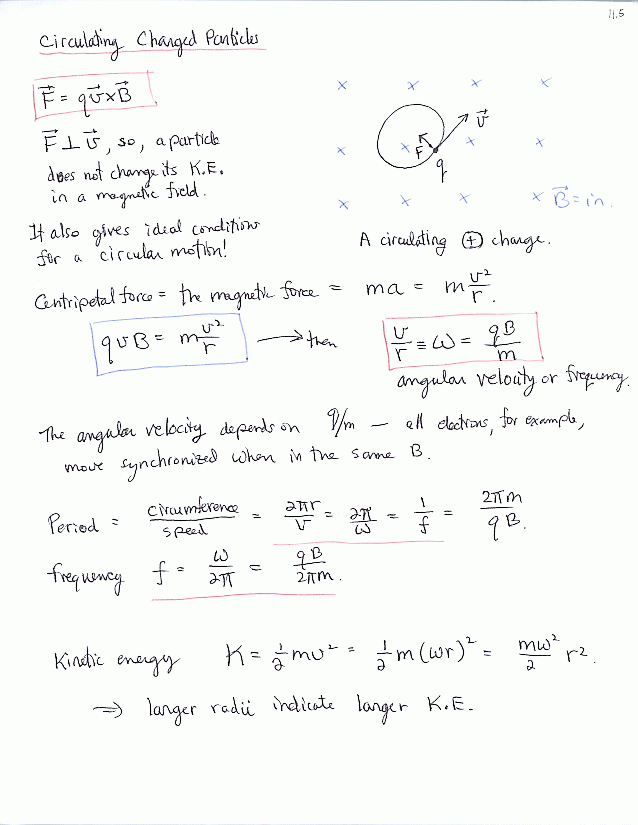 11.5
Circulating Charged Particles
F⃗ = qv⃗ × B⃗
F⃗ ⊥ v⃗, so, a particle
does not change its K.E.
in a magnetic field.
x x x x
v⃗
x x x x
F
q
x x x x B⃗ = in.
It also gives ideal condition
for a circular motion!
A circulating ⊕ charge.
Centripetal force = the magnetic force = ma = m v²/r.
qvB = m v²/r → then v/r ≡ ω = qB/m
angular velocity or frequency.
The angular velocity depends on q/m — all electrons, for example,
move synchronized when in the same B.
Period = circumference/speed = 2πr/v = 2π/ω = 1/f = 2πm/qB.
frequency f = ω/2π = qB/2πm.
Kinetic energy K = ½mv² = ½m(ωr)² = mω²/2 r².
⇒ larger radii indicate larger K.E.